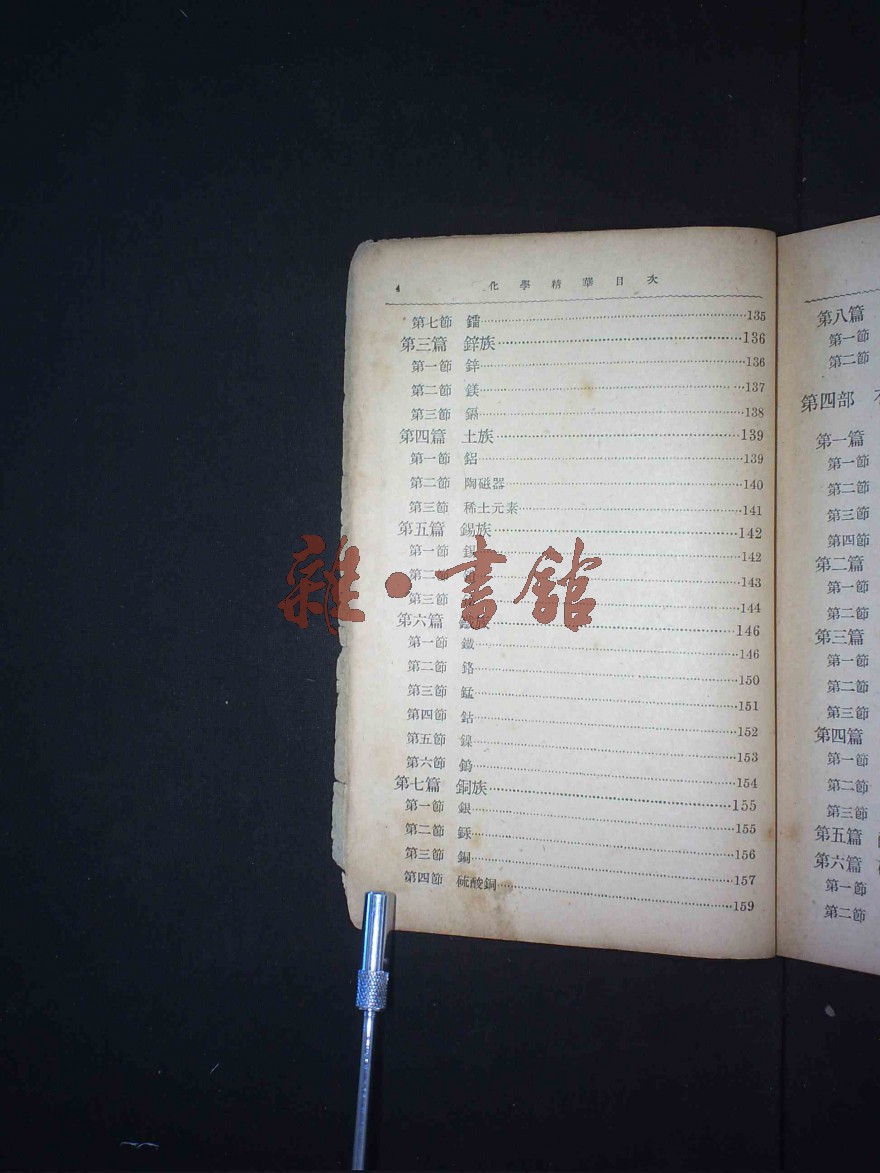 4 化學精華目次
第七節 鐳 135
第三篇 鋅族 136
第一節 鋅 136
第二節 鎂 137
第三節 鎘 138
第四篇 土族 139
第一節 鋁 139
第二節 陶磁器 140
第三節 稀土元素 141
第五篇 錫族 142
第一節 錫 142
第二 143
第三節 144
第六篇 鐵族 146
第一節 鐵 146
第二節 鉻 150
第三節 錳 151
第四節 鈷 152
第五節 鎳 153
第六節 鎢 154
第七篇 銅族 155
第一節 銀 155
第二節 156
第三節 銅 157
第四節 硫酸銅 159
雜·書館
第八篇
第一節
第二節
第四部
第一篇
第一節
第二節
第三節
第四節
第二篇
第一節
第二節
第三篇
第一節
第二節
第三節
第四篇
第一節
第二節
第三節
第五篇
第六篇
第一節
第二節